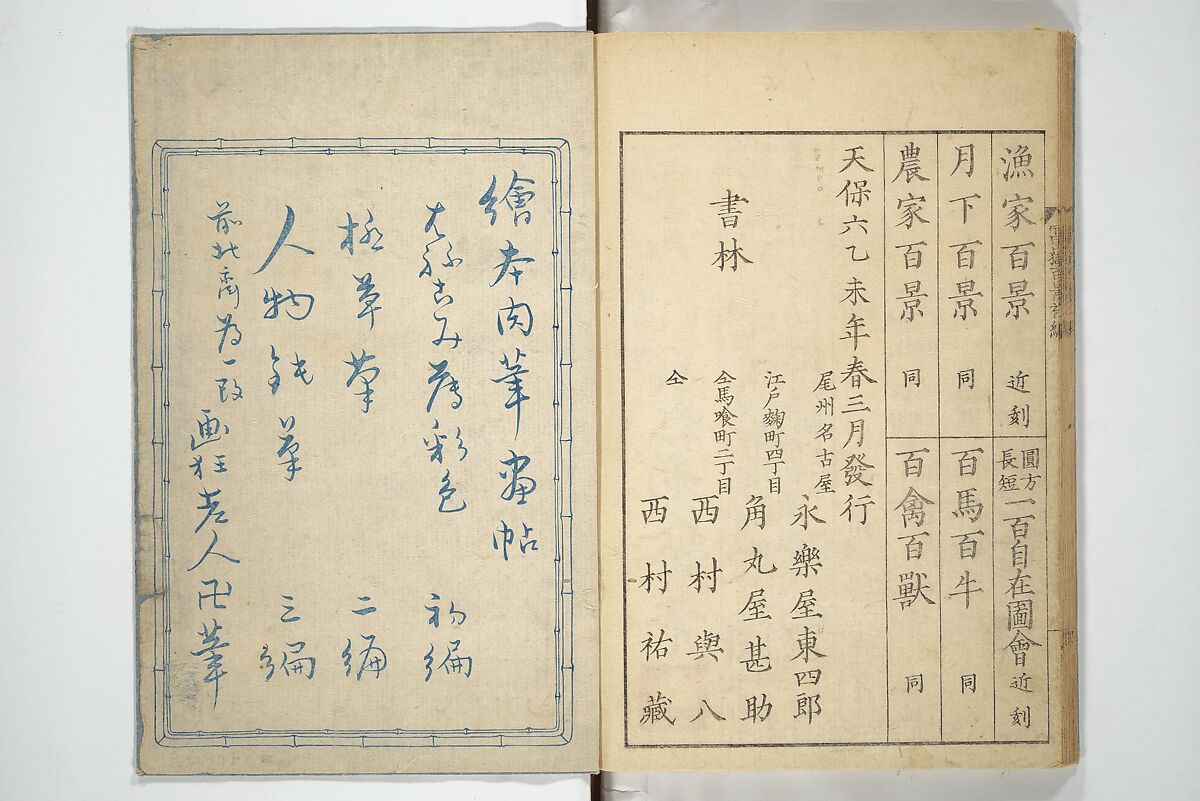 富嶽百景初編
漁家百景 近刻
圓方長短 一百自在圖會 近刻
月下百景 同
百馬百牛 同
農家百景 同
百禽百獸 同
天保六乙未年春三月發行
書林
尾州名古屋 永樂屋東四郎
江戸麹町四丁目 角丸屋甚助
仝馬喰町二丁目 西村與八
仝 西村祐藏
繪本肉筆画帖
薄彩色 初編
極草筆 二編
人物鈍筆 三編
前北斎為一改
画狂老人卍筆